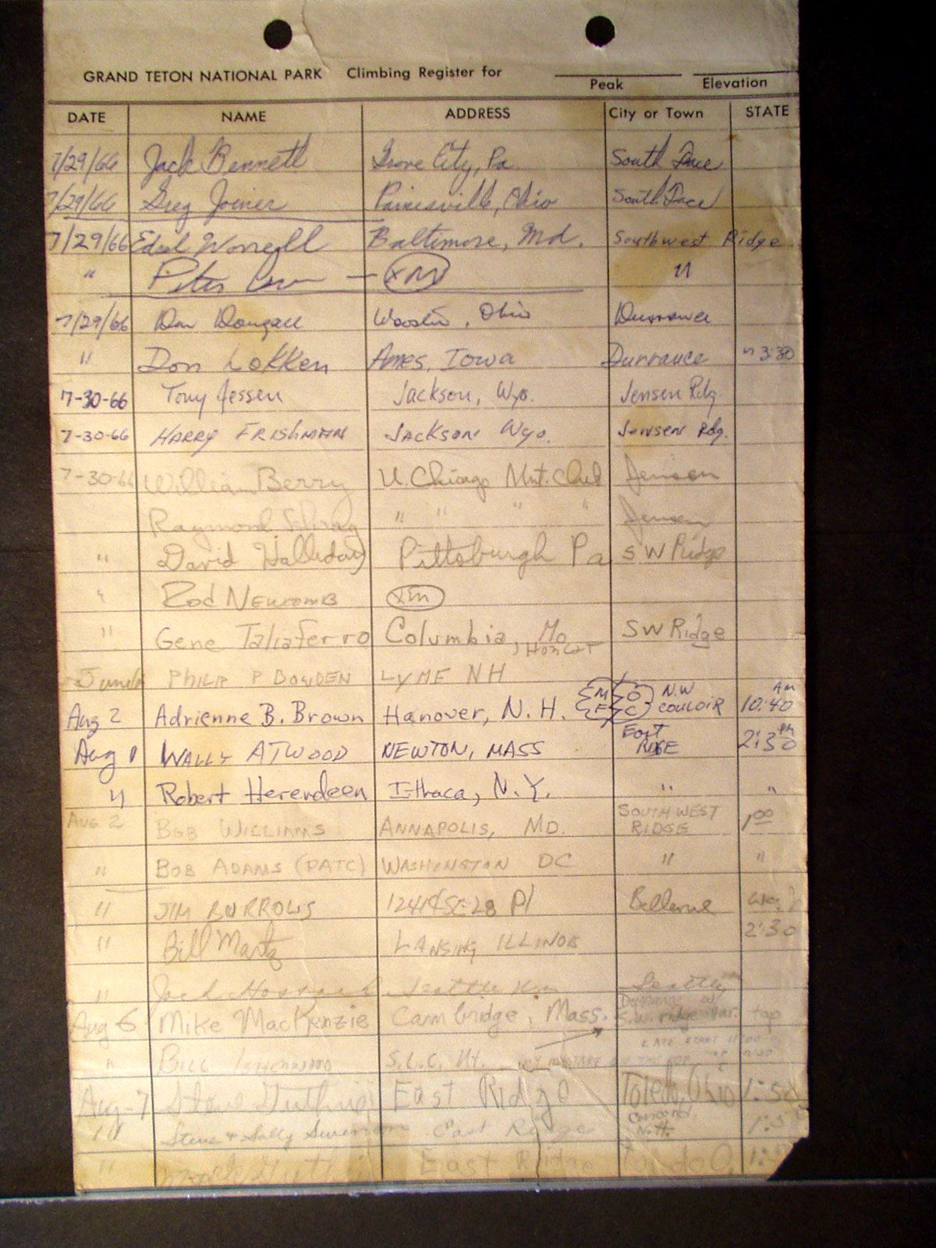 GRAND TETON NATIONAL PARK Climbing Register for
Peak Elevation
DATE NAME ADDRESS City or Town STATE
7/29/66 Jack Bennett Grove City, Pa. South Face
7/29/66 Greg Joiner Painesville, Ohio South Face
7/29/66 Edsel Worrell Baltimore, Md. Southwest Ridge
" Peter — XM "
7/29/66 Don Dougall Wooster, Ohio
" Don Lokken Ames, Iowa Durrance ~ 3:30
7-30-66 Tony Jessen Jackson, Wyo. Jensen Rdg.
7-30-66 HARRY FRISHMAN JACKSON Wyo. Jensen Rdg.
7-30-66 William Berry U. Chicago Mnt. Club Jensen
Raymond " " " " Jensen
" David Halliday Pittsburgh Pa SW Ridge
" Rod NEWCOMB XM
" Gene Taliaferro Columbia, Mo SW Ridge
PHILIP P BOWDEN LYME NH
Aug 2 Adrienne B. Brown Hanover, N.H. N.W COULOIR 10:40 Am
Aug 1 WALLY ATWOOD NEWTON, MASS East RIDGE 2:30 PM
" Robert Herendeen Ithaca, N.Y. " "
AUG 2 BOB WILLIAMS ANNAPOLIS, MD. SOUTH WEST RIDGE 1:00
" BOB ADAMS (PATC) WASHINGTON DC " "
" JIM BURROWS 12414 SE 28 Pl Bellevue
" Bill Martz LANSING ILLINOIS 2:30
" Jack Seattle Seattle
Aug 6 Mike MacKenzie Cambridge, Mass. S.W. ridge var. top
" BILL S.L.C. Ut.
Aug-7 Steve Guthrie East Ridge Toledo, Ohio 1:50
" Steve & Sally East Ridge Concord, N.H.
" Guthrie East Ridge Toledo O.